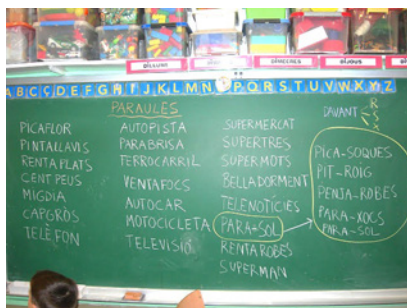 DILLUNS
DIMECRES
DIJOUS
ABCÇDEFGHIJKLMNOPQRSTUVWXYZ
PARAULES
PICAFLOR
PINTALLAVIS
RENTAPLATS
CENT PEUS
MIGDIA
CAPGRÒS
TELÈFON
AUTOPISTA
PARABRISA
FERROCARRIL
VENTAFOCS
AUTOCAR
MOTOCICLETA
TELEVISIÓ
SUPERMERCAT
SUPERTRES
SUPERMOTS
BELLADORMENT
TELENOTÍCIES
PARA-SOL
RENTAROBES
SUPERMAN
DAVANT
R
S
X
PICA-SOQUES
PIT-ROIG
PENJA-ROBES
PARA-XOCS
PARA-SOL